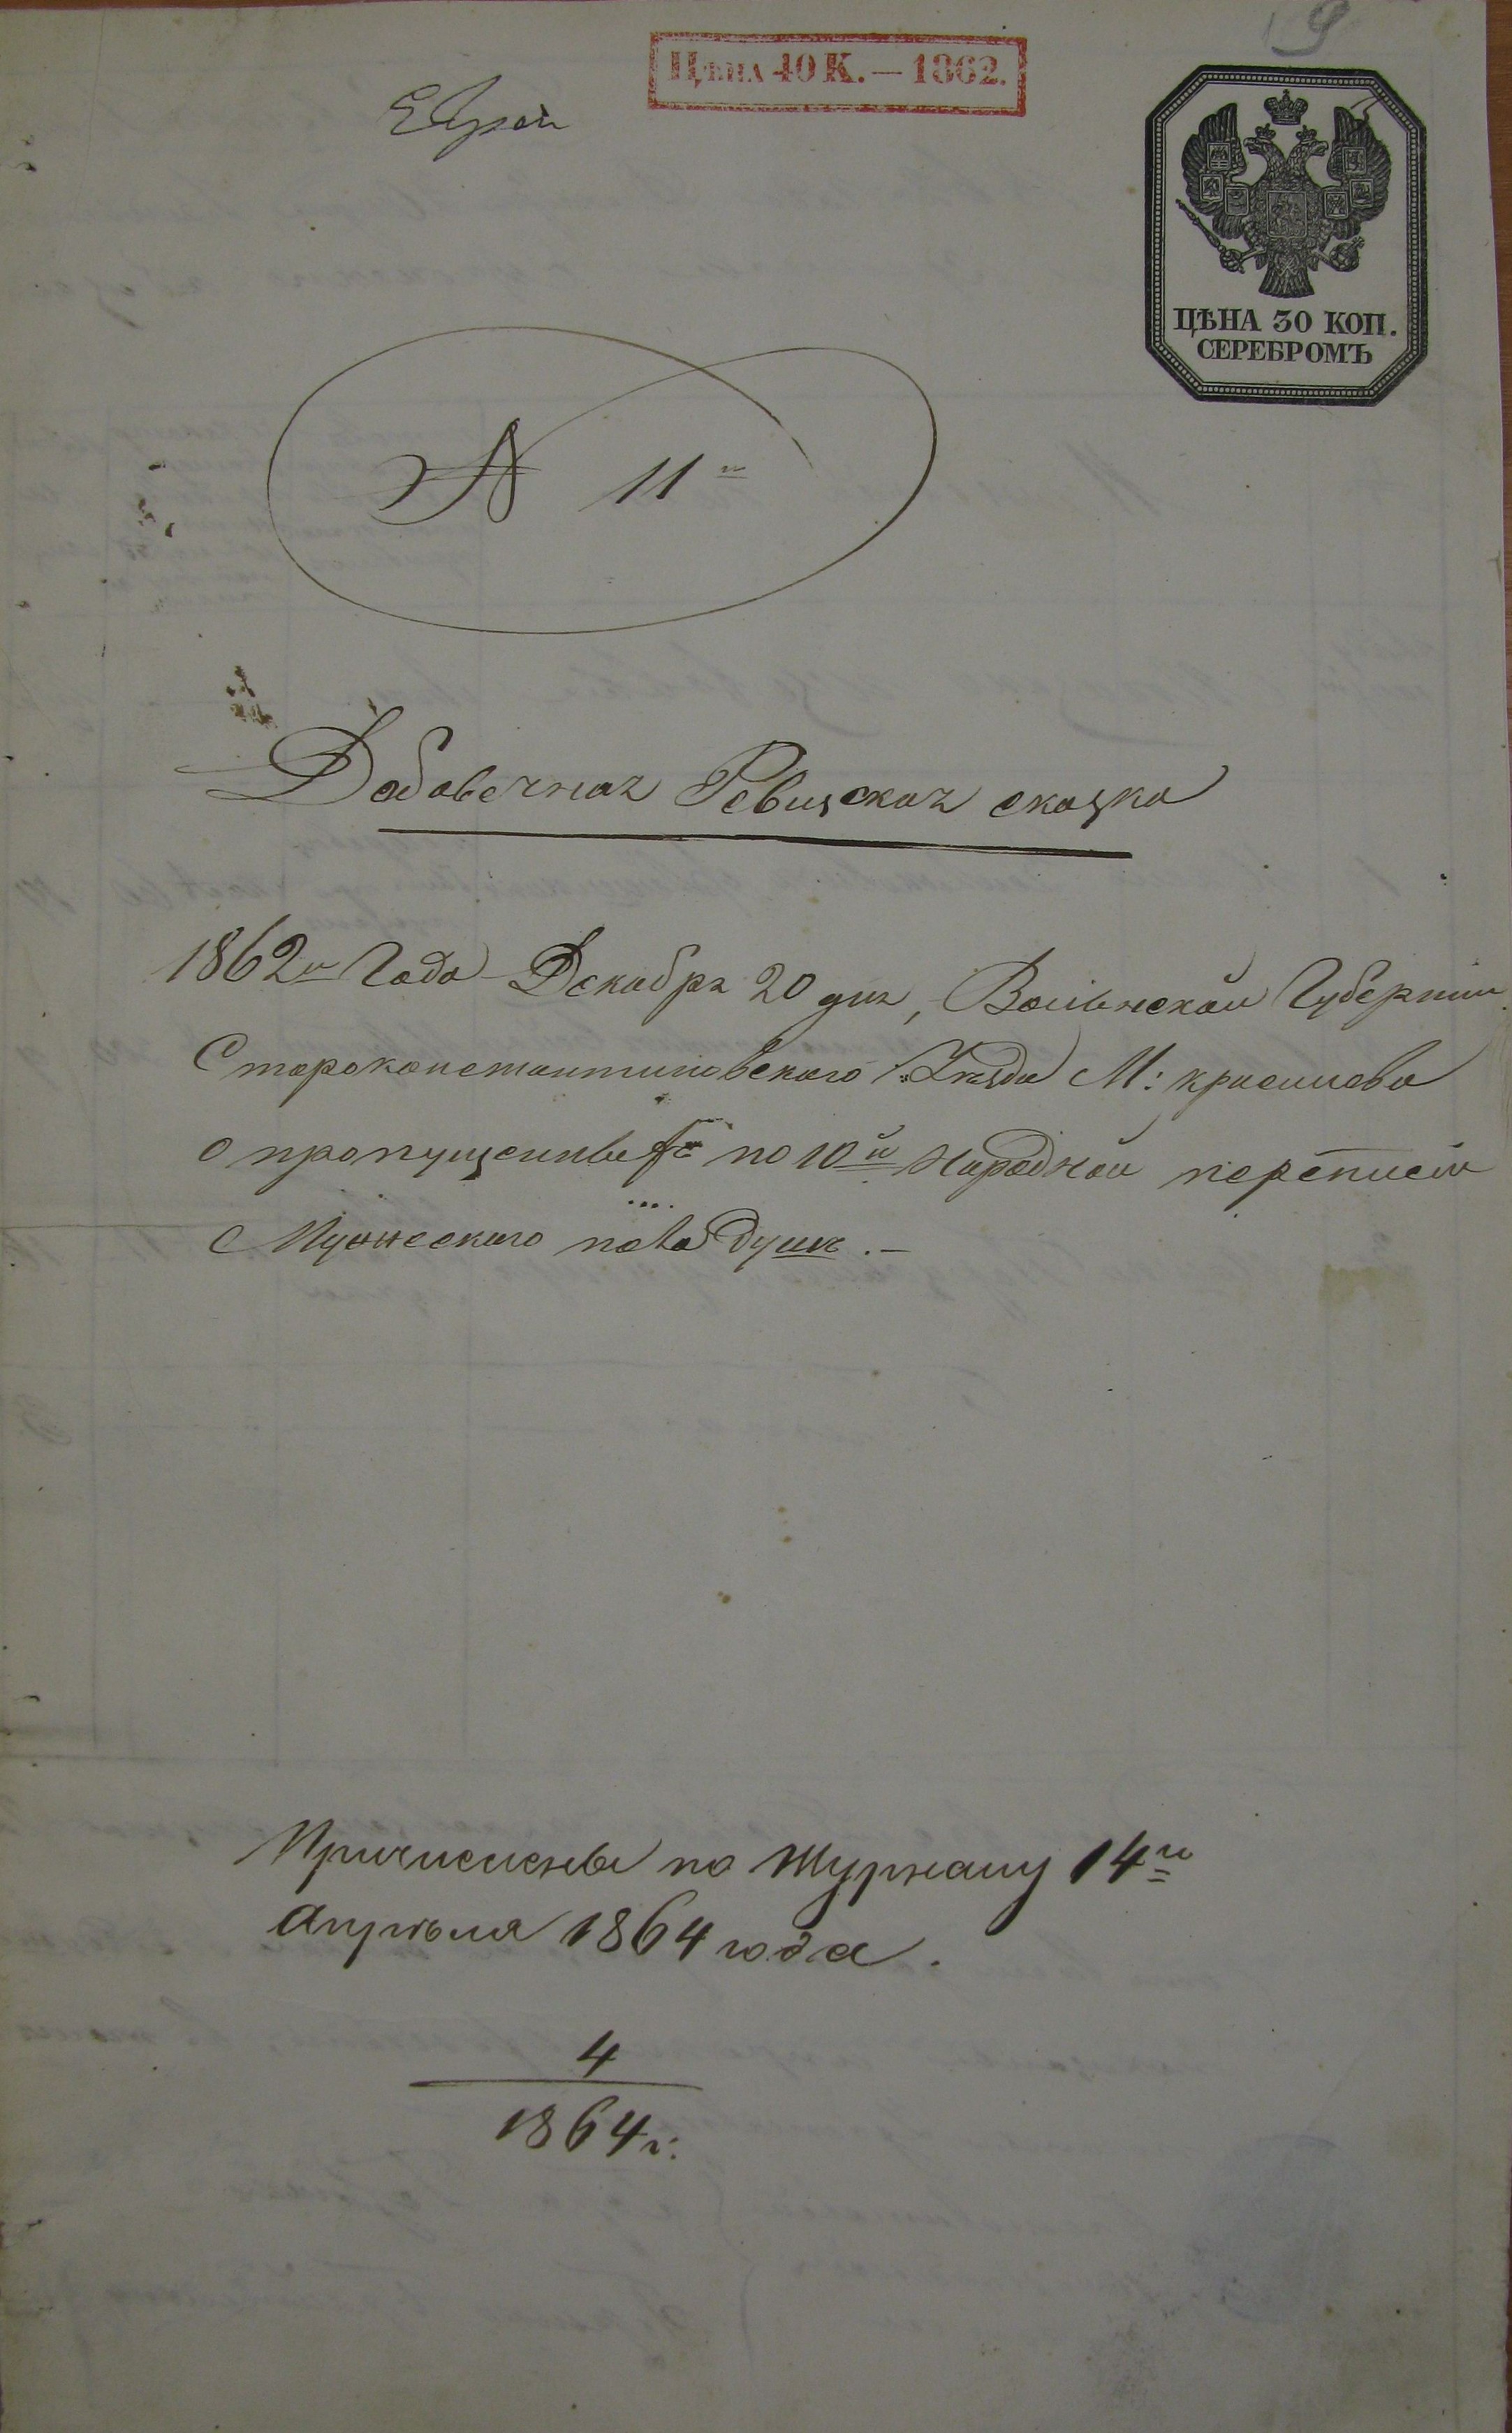 9
Цѣна 40 К. — 1862.
Еврей
ЦѢНА 30 КОП.
СЕРЕБРОМЪ
№ 11й
Добавочная Ревизская сказка
1862го Года Декабря 20 дня, Волынской Губернии
Староконстантиновского Уезда М: красилова
о пропущенных по 10й Народной переписи
Мужеского пола душъ. —
Причислены по Журналу 14го
Апрѣля 1864 года.
4
1864 г.